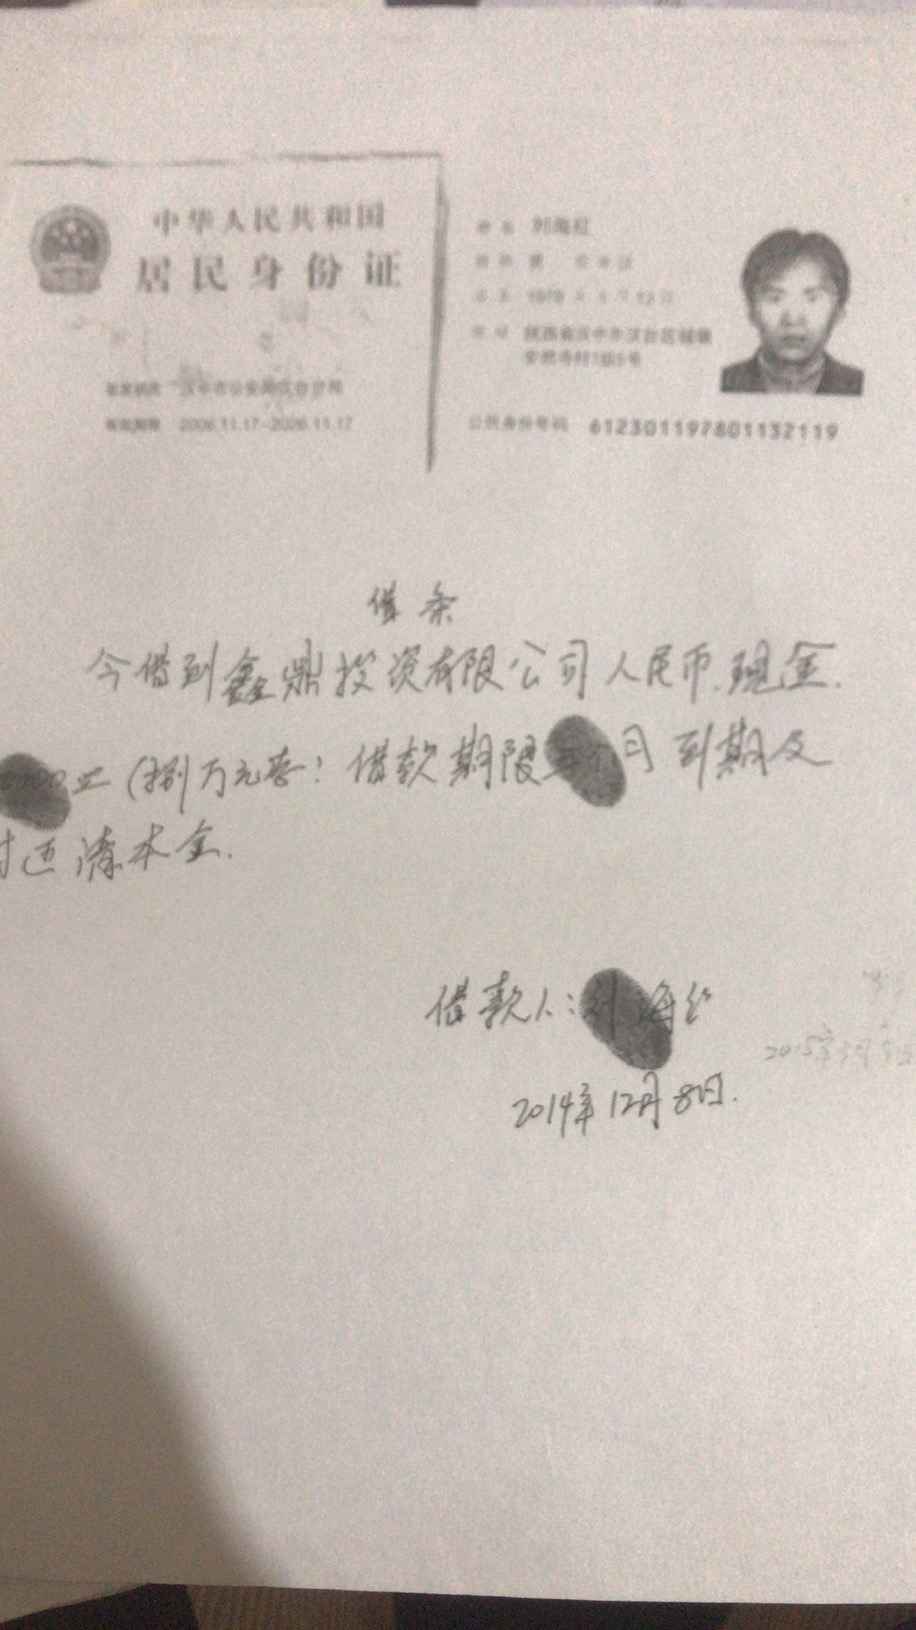 中华人民共和国
居民身份证
签发机关 汉中市公安局汉台分局
有效期限 2006.11.17-2026.11.17
姓名 刘海红
出生 1978年1月13日
住址 陕西省汉中市汉台区铺镇
公民身份号码 612301197801132119
借条
今借到鑫鼎投资有限公司人民币.现金.
(捌万元整! 借款期限 个月 到期及
时还清本金.
借款人:刘海红
2014年12月8日.
2015年3月